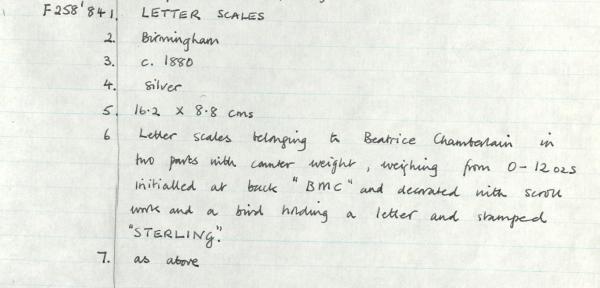 F258'84 1. LETTER SCALES
2. Birmingham
3. c. 1880
4. Silver
5. 16.2 x 8.8 cms
6 Letter scales belonging to Beatrice Chamberlain in
two parts with counter weight, weighing from 0-12 ozs
initialled at back "BMC" and decorated with scroll
work and a bird holding a letter and stamped
"STERLING".
7. as above